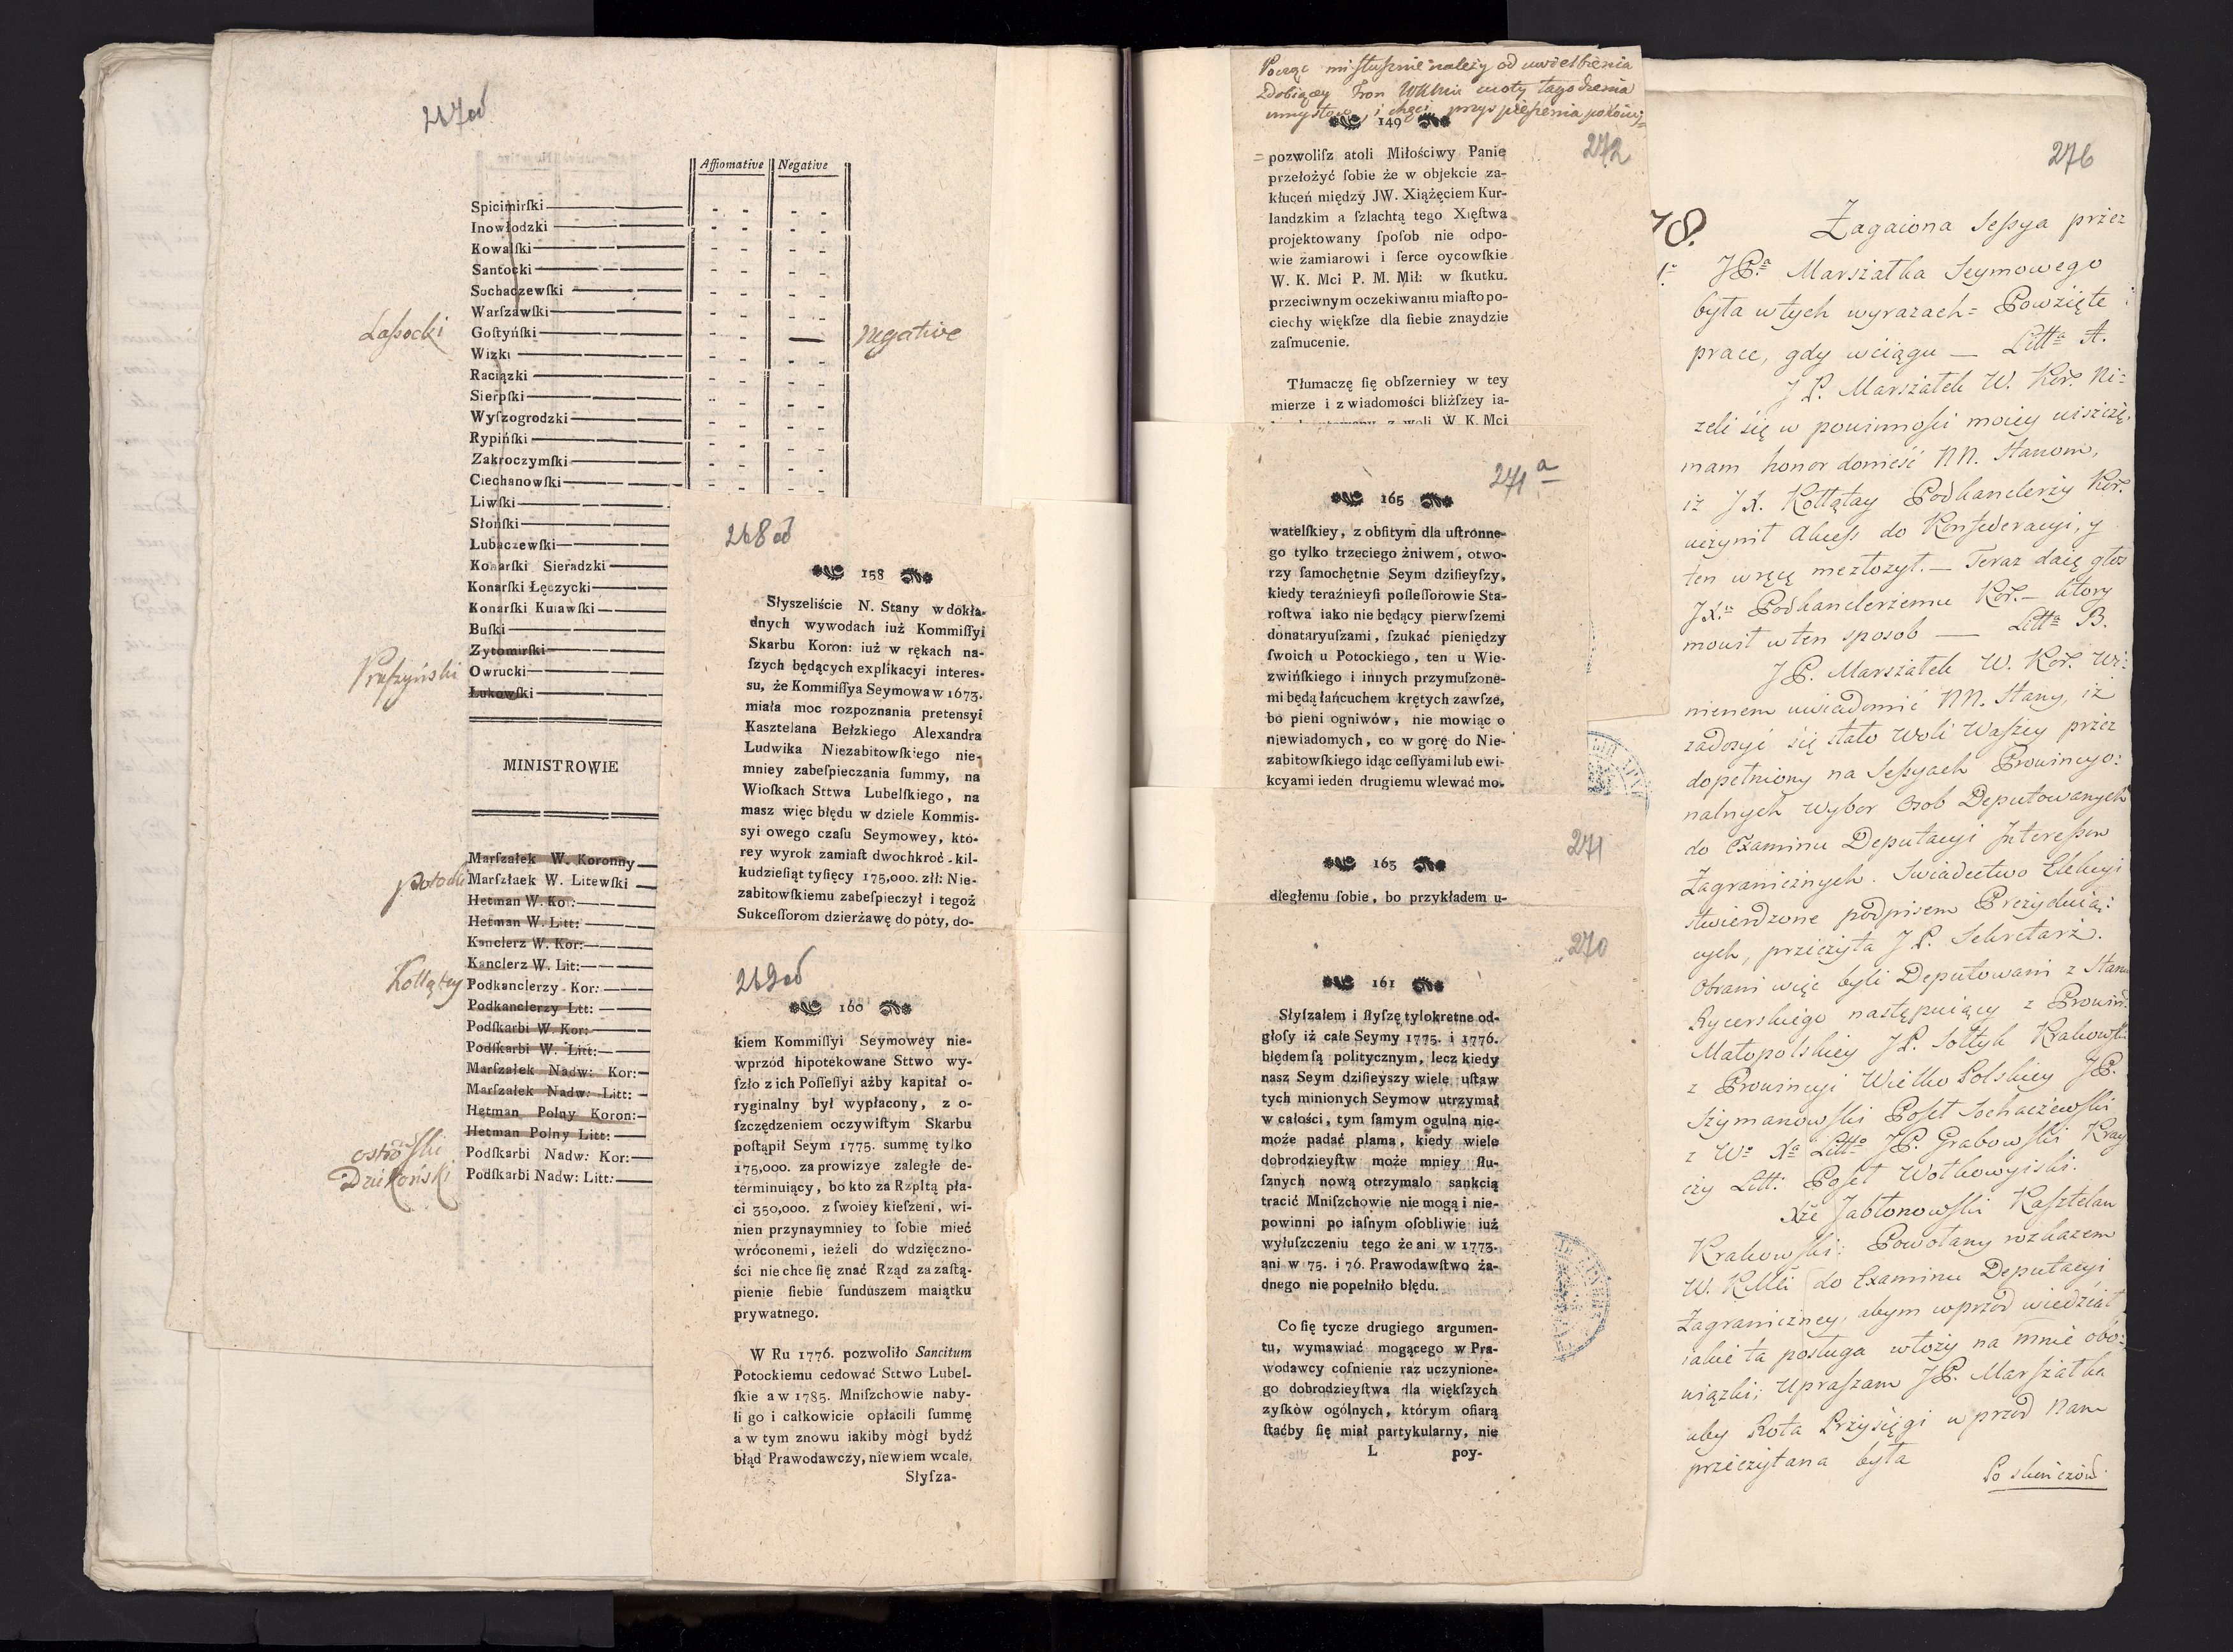 267od
Affiomative Negative
Spicimirſki
Inowłodzki
Kowalſki
Santocki
Sochaczewſki
Warſzawſki
Laſsocki Goſtyńſki negative
Wizki
Raciązki
Sierpſki
Wyſzogrodzki
Rypińſki
Zakroczymſki
Ciechanowſki
Liwſki
Słońſki
Lubaczewſki
Konarſki Sieradzki
Konarſki Łęczycki
Konarſki Kuiawſki
Buſki
Zytomirſki
Pruſzyński Owrucki
Łukowſki
MINISTROWIE
Marſzałek W. Koronny
Potocki Marſzłaek W. Litewſki
Hetman W. Kor:
Hetman W. Litt:
Kanclerz W. Kor:
Kanclerz W. Lit:
Kołłątay Podkanclerzy Kor:
Podkanclerzy Ltt:
Podſkarbi W. Kor:
Podſkarbi W. Litt:
Marſzałek Nadw: Kor:
Marſzałek Nadw: Litt:
Hetman Polny Koron:
Hetman Polny Litt:
Ostroſki Podſkarbi Nadw: Kor:
Dziekoński Podſkarbi Nadw: Litt:
268od
158
Słyszeliście N. Stany w dokła-
dnych wywodach iuż Kommiſſyi
Skarbu Koron: iuż w rękach na-
ſzych będących explikacyi interes-
su, że Kommiſſya Seymowa w 1673.
miała moc rozpoznania pretensyi
Kasztelana Bełzkiego Alexandra
Ludwika Niezabitowſkiego nie-
mniey zabeſpieczania ſummy, na
Wioſkach Sttwa Lubelſkiego, na
masz więc błędu w dziele Kommis-
syi owego czaſu Seymowey, któ-
rey wyrok zamiaſt dwochkroć kil-
kudzieſiąt tyſięcy 175,000. złł: Nie-
zabitowſkiemu zabeſpieczył i tegoż
Sukceſſorom dzierżawę do póty, do-
269od
160
kiem Kommiſſyi Seymowey nie-
wprzód hipotekowane Sttwo wy-
ſzło z ich Poſſeſſyi ażby kapitał o-
ryginalny był wypłacony, z o-
ſzczędzeniem oczywiſtym Skarbu
poſtąpił Seym 1775. summę tylko
175,000. za prowizye zaległe de-
terminuiący, bo kto za Rzpltą pła-
ci 350,000. z ſwoiey kieſzeni, wi-
nien przynaymniey to ſobie mieć
wróconemi, ieżeli do wdzięczno-
ści nie chce ſię znać Rząd za zaſtą-
pienie ſiebie ſunduszem maiątku
prywatnego.
W Ru 1776. pozwoliło Sancitum
Potockiemu cedować Sttwo Lubel-
ſkie a w 1785. Mniſzchowie naby-
li go i całkowicie opłacili ſummę
a w tym znowu iakiby mógł bydź
błąd Prawodawczy, niewiem wcale.
Słyſza-
należy od uwielbienia
Zdobiącey Tron WKMci cnoty łagodzenia
149
272
pozwoliſz atoli Miłościwy Panie
przełożyć ſobie że w objekcie za-
kłuceń między JW. Xiążęciem Kur-
landzkim a ſzlachtą tego Xięſtwa
projektowany ſpoſob nie odpo-
wie zamiarowi i ſerce oycowſkie
W. K. Mci P. M. Mił: w ſkutku.
przeciwnym oczekiwaniu miaſto po-
ciechy więkſze dla ſiebie znaydzie
zaſmucenie.
Tłumaczę ſię obſzerniey w tey
mierze i z wiadomości bliżſzey ia-
z woli W. K. Mci
271a
165
watelſkiey, z obfitym dla uſtronne-
go tylko trzeciego żniwem, otwo-
rzy ſamochętnie Seym dziſieyſzy,
kiedy teraźnieyſi poſſeſſorowie Sta-
roſtwa iako nie będący pierwſzemi
donataryuſzami, ſzukać pieniędzy
ſwoich u Potockiego, ten u Wie-
zwińſkiego i innych przymuſzone-
mi będą łańcuchem krętych zawſze,
bo pieni ogniwów, nie mowiąc o
niewiadomych, co w gorę do Nie-
zabitowſkiego idąc ceſſyami lub ewi-
kcyami ieden drugiemu wlewać mo-
271
163
dległemu ſobie, bo przykładem u-
270
161
Słyſzałem i ſłyſzę tylokretne od-
głoſy iż całe Seymy 1775. i 1776.
błędem ſą politycznym, lecz kiedy
nasz Seym dziſieyszy wiele uſtaw
tych minionych Seymow utrzymał
w całości, tym ſamym ogulna nie-
może padać plama, kiedy wiele
dobrodzieyſtw może mniey ſłu-
ſznych nową otrzymalo sankcią
tracić Mniſzchowie nie mogą i nie-
powinni po iaſnym oſobliwie iuż
wyłuſzczeniu tego że ani w 1773.
ani w 75. i 76. Prawodawſtwo ża-
dnego nie popełniło błędu.
Co ſię tycze drugiego argumen-
tu, wymawiać mogącego w Pra-
wodawcy cofnienie raz uczynione-
go dobrodzieyſtwa dla więkſzych
zyſków ogólnych, którym ofiarą
ſtaćby ſię miał partykularny, nie
L poy-
276
78. Zagaiona Seſsya przez
JPa Marszałka Seymowego
była w tych wyrazach= Powzięte
prace, gdy wciągu — Litta A.
J P. Marszałek W. Kor. Ni=
zeli się w powinności moiey uiszczę,
mam honor donieść NN. Stanom,
iż JX. Kołłątay Podkanclerzy Kor.
uczynił Akceſs do Konfederacyi, y
ten w ręce me złożył. — Teraz daię głos
JXu Podkanclerzemu Kor. — ktory
mowił w ten sposob — Litta B.
JP. Marszałek W. Kor. Wi=
nienem uwiadomić NN. Stany, iż
zadosyć się stało Woli Waſzey przez
dopełniony na Seſsyach Prowincyo:
nalnych Wybor Osob Deputowanych
do Examinu Deputacyi Intereſsow
Zagranicznych. Swiadectwo Elekcyi
stwierdzone podpisem Prezyduią:
cych, przeczyta J P. Sekretarz.
Obrani więc byli Deputowani z Stanu
Rycerskiego następuiący z Prowin:
Małopolskiey JP. Sołtyk Krakowſki
z Prowincyi Wielko Polskiey JP.
Szymanowſki Poſeł Sochaczewſki
z Wo Xa Litto JP. Grabowſki Kray
czy Litt: Poſeł Wołkowyiski.
Xże Jabłonowſki Kaſztelan
Krakowſki: Powołany rozkazem
W. KMci do Examinu Deputacyi
Zagraniczney, abym wprzod wiedział
iakie ta posługa włoży na mnie obo=
wiązki; Upraſzam JP. Marſzałka
aby Rota Przysięgi wprzod Nam
przeczytana była
Po skończon: